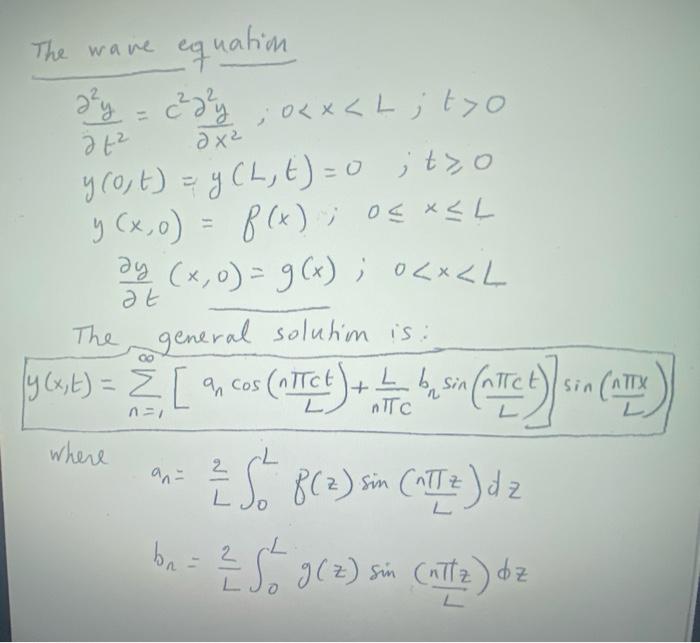 The wave equation
∂²y/∂t² = c² ∂²y/∂x² ; 0<x<L ; t>0
y(0,t) = y(L,t) = 0 ; t≥0
y(x,0) = f(x) ; 0≤x≤L
∂y/∂t (x,0) = g(x) ; 0<x<L
The general solution is:
y(x,t) = ∑_{n=1}^{∞} [ aₙ cos(nπct/L) + L/nπc bₙ sin(nπct/L) ] sin(nπx/L)
where
aₙ = 2/L ∫₀ᴸ f(z) sin(nπz/L) dz
bₙ = 2/L ∫₀ᴸ g(z) sin(nπz/L) dz